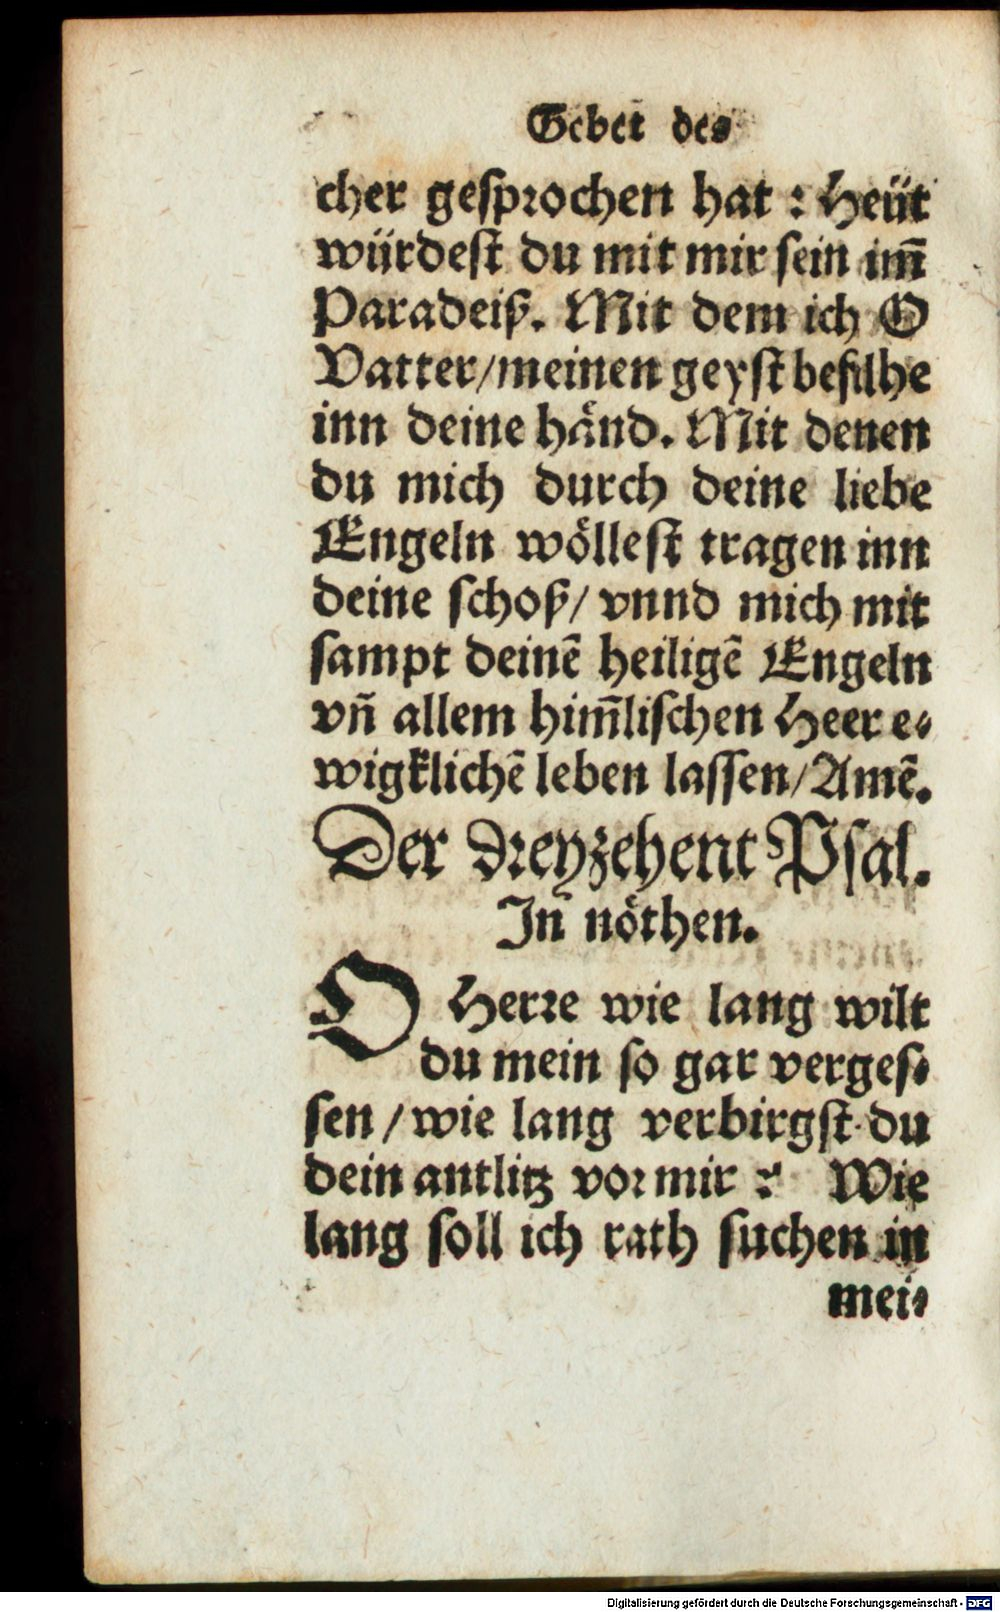 Gebet des
cher gesprochen hat : Heüt
würdest du mit mir sein im̃
Paradeiß. Mit dem ich O
Vatter/meinen geyst befilhe
inn deine hånd. Mit denen
du mich durch deine liebe
Engeln wöllest tragen inn
deine schoß/ vnnd mich mit
sampt deinẽ heiligẽ Engeln
vñ allem him̃lischen Heer e-
wigklichẽ leben lassen/Amẽ.
Der dreyzehent Psal.
In nöthen.
O Herre wie lang wilt
du mein so gar verges-
sen / wie lang verbirgst du
dein antlitz vor mir ? Wie
lang soll ich rath suchen in
mei-
Digitalisierung gefördert durch die Deutsche Forschungsgemeinschaft - DFG